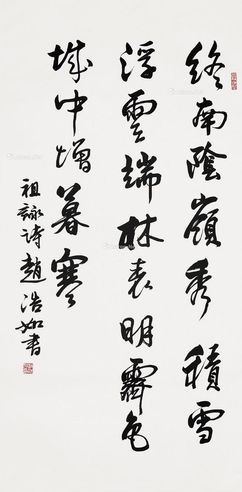 終南陰嶺秀積雪
浮雲端林表明霽色
城中增暮寒
祖詠诗趙浩如書